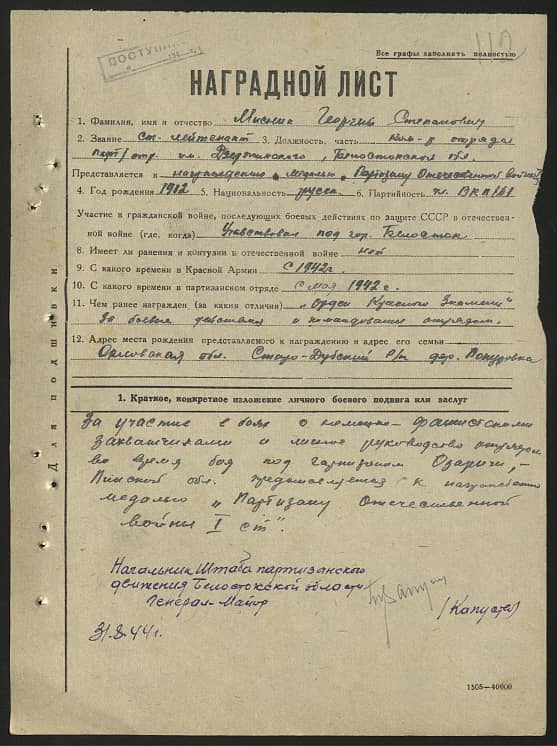 ПОСТУПИЛ
Все графы заполнять полностью
НАГРАДНОЙ ЛИСТ
1. Фамилия, имя и отчество Мисник Георгий Степанович
2. Звание Ст. лейтенант 3. Должность, часть ком-р отряда
парт/отр. им. Дзержинского, Белостокской обл.
Представляется к награждению медалью „Партизану Отечественной войны"
4. Год рождения 1912 5. Национальность русск. 6. Партийность чл. ВКП(б)
Участие в гражданской войне, последующих боевых действиях по защите СССР в отечествен-
ной войне (где, когда) Участвовал под гор. Белосток
8. Имеет ли ранения и контузии в отечественной войне нет
9. С какого времени в Красной Армии с 1942г.
10. С какого времени в партизанском отряде с мая 1942 г.
11. Чем ранее награжден (за какия отличия) „Орден Красного Знамени"
за боевые действия и командование отрядом.
12. Адрес места рождения представляемого к награждению и адрес его семьи
Орловская обл. Старо-Дубский р/н дер.
Для подшивки
1. Краткое, конкретное изложение личного боевого подвига или заслуг
За участие в боях с немецко-фашистскими
захватчиками и личное руководство отрядом
во время боя под гарнизоном Озаричи,-
Пинской обл. представляется к награждению
медалью „Партизану Отечественной
войны I ст".
Начальник Штаба партизанского
движения Белостокской области
Генерал-Майор
(Капуста)
31.8.44г.
1505—40000